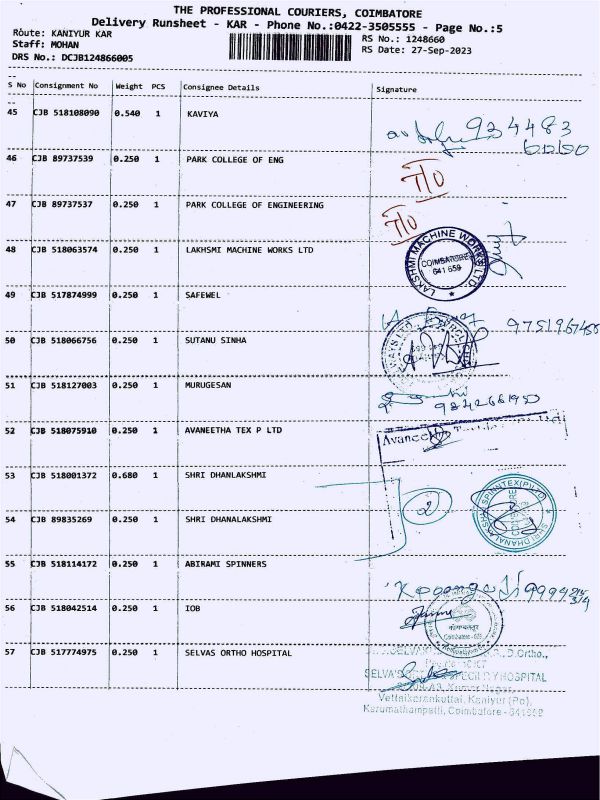 THE PROFESSIONAL COURIERS, COIMBATORE
Delivery Runsheet - KAR - Phone No.:0422-3505555 - Page No.:5
Route: KANIYUR KAR
RS No.: 1248660
Staff: MOHAN
RS Date: 27-Sep-2023
DRS No.: DCJB124866005
S No Consignment No Weight PCS Consignee Details Signature
45 CJB 518108090 0.540 1 KAVIYA
934483
46 CJB 89737539 0.250 1 PARK COLLEGE OF ENG
T/O
47 CJB 89737537 0.250 1 PARK COLLEGE OF ENGINEERING
T/O
48 CJB 518063574 0.250 1 LAKHSMI MACHINE WORKS LTD
LAKSHMI MACHINE WORKS LTD.
COIMBATORE
641 659
49 CJB 517874999 0.250 1 SAFEWEL
50 CJB 518066756 0.250 1 SUTANU SINHA
51 CJB 518127003 0.250 1 MURUGESAN
52 CJB 518075910 0.250 1 AVANEETHA TEX P LTD
53 CJB 518001372 0.680 1 SHRI DHANLAKSHMI
2
54 CJB 89835269 0.250 1 SHRI DHANALAKSHMI
55 CJB 518114172 0.250 1 ABIRAMI SPINNERS
56 CJB 518042514 0.250 1 IOB
57 CJB 517774975 0.250 1 SELVAS ORTHO HOSPITAL
D.Ortho.,
HOSPITAL
Vettaikarankuttai, Kaniyur (Po),
Karumathampatti, Coimbatore -